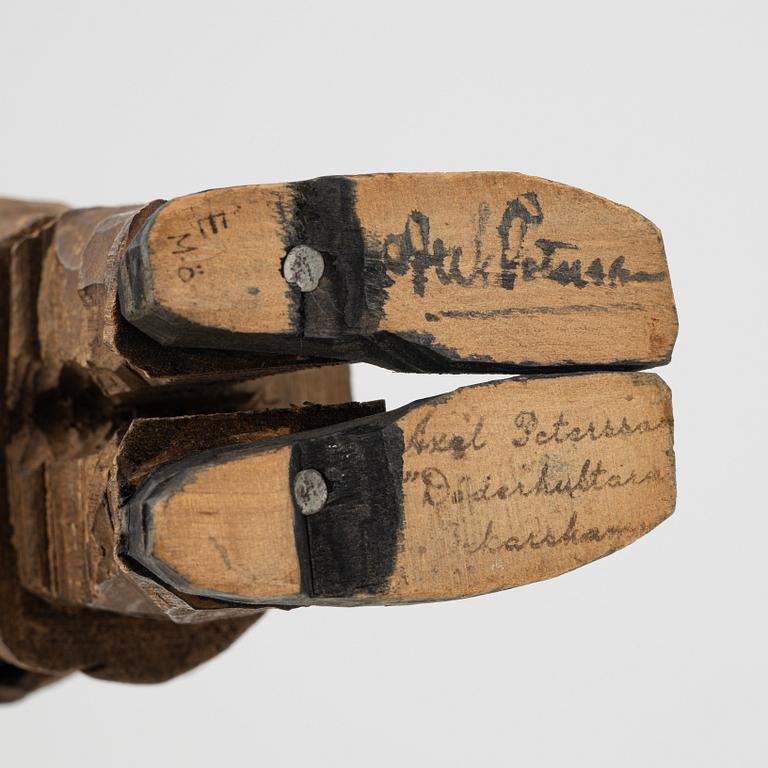 E
M.Ö
Axel Petersson
Axel Petersson
"Döderhultarn"
Oskarshamn